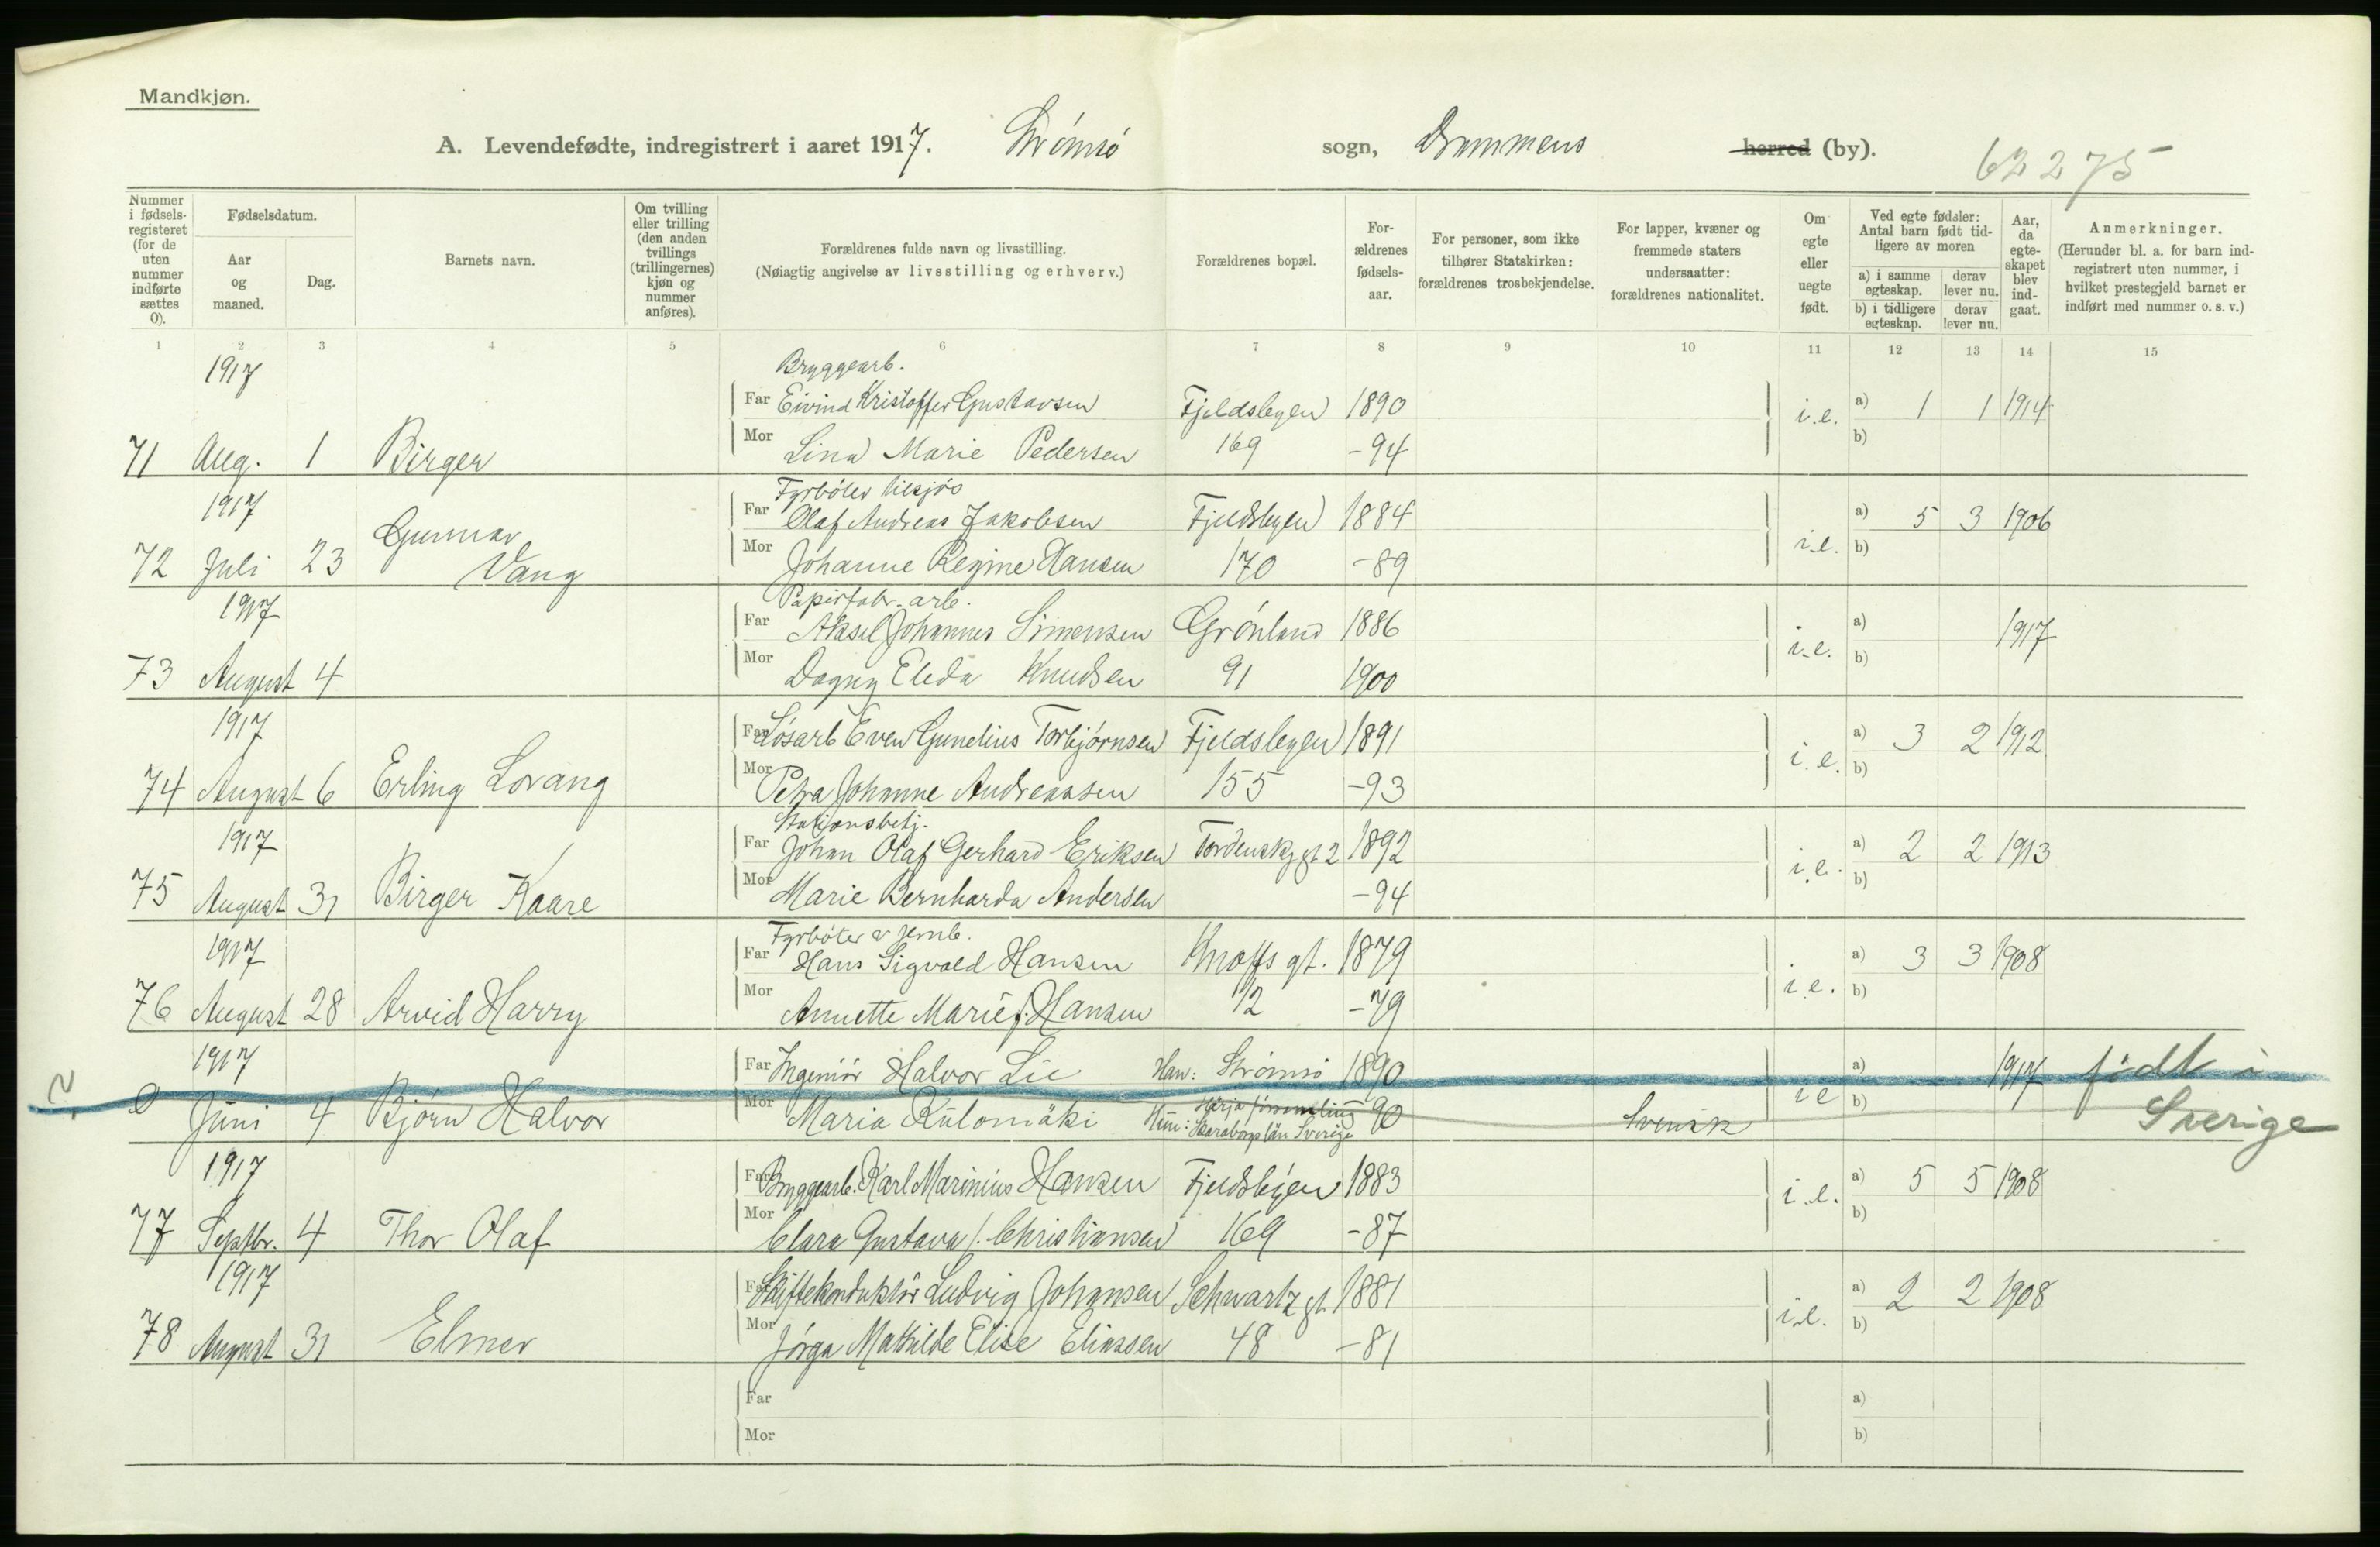 Mandkjøn.
A. Levendefødte, indregistrert i aaret 1917. Strömsö sogn, Drammens herred (by).
62 275
Nummer i fødsels-registeret (for de uten nummer indførte sættes 0).
Fødselsdatum.
Aar og maaned.
Dag.
Barnets navn.
Om tvilling eller trilling (den anden tvillings (trillingernes) kjøn og nummer anføres).
Forældrenes fulde navn og livsstilling.
(Nøiagtig angivelse av livsstilling og erhverv.)
Forældrenes bopæl.
For-ældrenes fødsels-aar.
For personer, som ikke tilhører Statskirken: forældrenes trosbekjendelse.
For lapper, kvæner og fremmede staters undersaatter: forældrenes nationalitet.
Om egte eller uegte født.
Ved egte fødsler: Antal barn født tid-ligere av moren
a) i samme egteskap.
derav lever nu.
b) i tidligere egteskap.
derav lever nu.
Aar, da egte-skapet blev ind-gaat.
Anmerkninger.
(Herunder bl. a. for barn ind-registrert uten nummer, i hvilket prestegjeld barnet er indført med nummer o. s. v.)
1 2 3 4 5 6 7 8 9 10 11 12 13 14 15
1917 Bryggearb.
Far Eivind Kristoffer Gustavsen Fjeldsbyen 1890 i.e. a) 1 1 1914
71 Aug. 1 Birger Mor Lina Marie Pedersen 169 -94 b)
1917 Fyrböter tilsjös
Far Olaf Andreas Jakobsen Fjeldsbyen 1884 a) 5 3 1906
72 Juli 23 Gunnar Vang Mor Johanne Regine Hansen 170 -89 i.e. b)
1917 Papirfabr. arb.
Far Aksel Johannes Simensen Grönland 1886 a) 1917
73 August 4 Mor Dagny Eleda Knudsen 91 1900 i.e. b)
1917 Far Løsarb Even Gunelius Torbjørnsen Fjeldsbyen 1891 a) 3 2 1912
74 August 6 Erling Lorang Mor Petra Johanne Andreassen 155 -93 i.e. b)
1917 Stationsbetj.
Far Johan Olaf Gerhard Eriksen Tordenskj gt 2 1892 a) 2 2 1913
75 August 31 Birger Kaare Mor Marie Bernharda Andersen -94 i.e. b)
1917 Fyrböter v jernb.
Far Hans Sigvald Hansen Knoffs gt. 1879 a) 3 3 1908
76 August 28 Arvid Harry Mor Annette Marie f. Hansen 12 -79 i.e. b)
1917 Far Ingeniör Halvor Lie Han: Strömsö 1890 a) 1917 födt i
0 Juni 4 Björn Halvor Mor Maria Kulomäki Hun: Härja församling Skaraborgs län Sverige 90 Svensk ie b) Sverige
1917 Far Bryggearb. Karl Marinius Hansen Fjeldsbyen 1883 a) 5 5 1908
77 Septbr. 4 Thor Olaf Mor Clara Gustava f. Christiansen 169 -87 i.e. b)
1917 Far Skiftekonduktör Ludvig Johansen Schwartz gt 1881 a) 2 2 1908
78 August 31 Elmer Mor Jörga Mathilde Elise Eliassen 48 -81 i.e. b)
Far a)
Mor b)